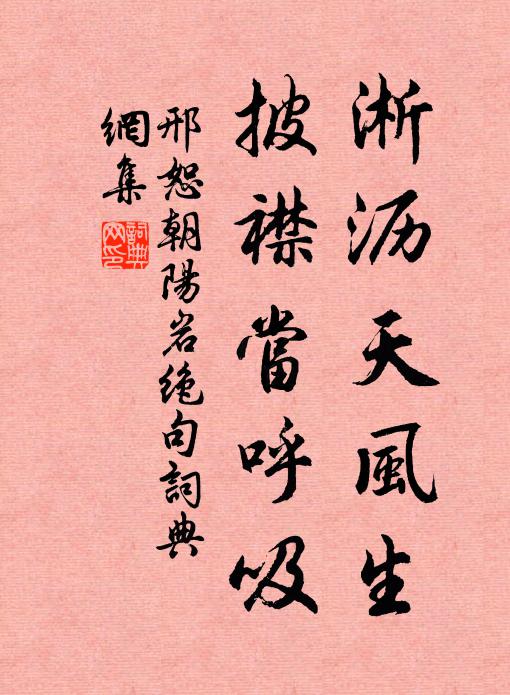 淅沥天風生
披襟當呼吸
邢恕朝陽岩絶句詞典
網集
詞典
网印